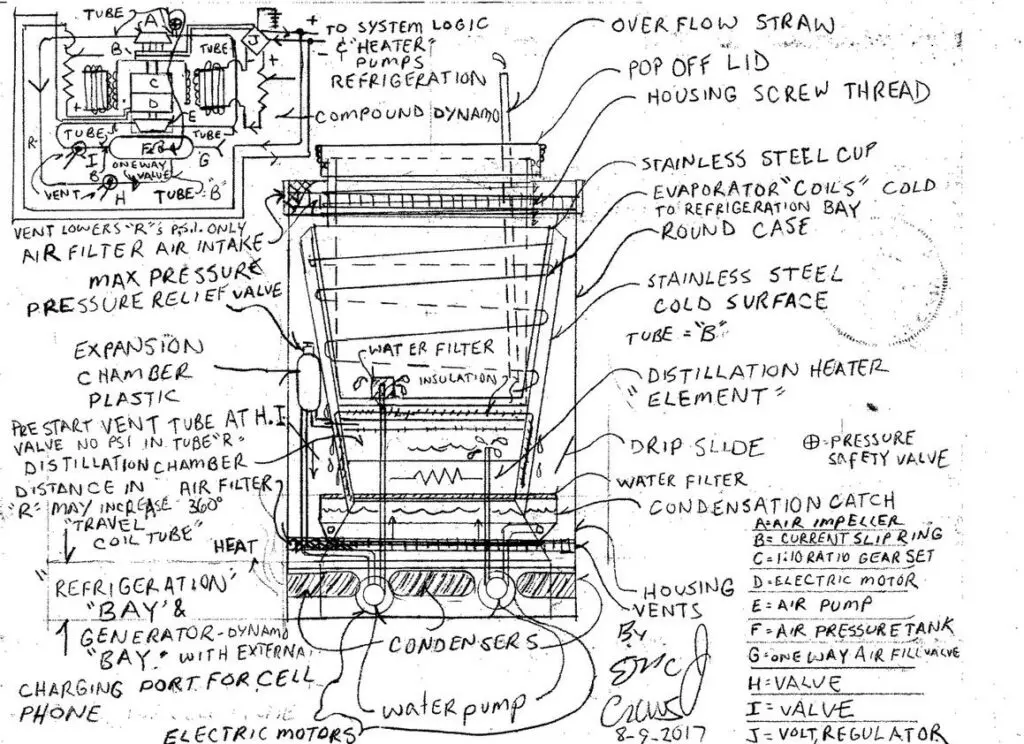 TUBE
A
B
TUBE
C
D
E
TUBE
F&R
TUBE
R
I
G
ONEWAY
VALVE
B
VENT
H
TUBE "B"
J
+ TO SYSTEM LOGIC
- & "HEATER"
PUMPS
REFRIGERATION
COMPOUND DYNAMO
VENT LOWERS "R"'s P.S.I. ONLY
AIR FILTER AIR INTAKE
MAX PRESSURE
PRESSURE RELIEF VALVE
EXPANSION
CHAMBER
PLASTIC
PRE START VENT TUBE AT H.I
VALVE NO PSI IN TUBE "R"
DISTILLATION CHAMBER
DISTANCE IN
"R" MAY INCREASE
"TRAVEL
COIL TUBE"
AIR FILTER
360°
HEAT
"REFRIGERATION"
"BAY" &
GENERATOR-DYNAMO
"BAY." WITH EXTERNAL
CHARGING PORT FOR CELL
PHONE
ELECTRIC MOTORS
WATER FILTER
INSULATION
CONDENSERS
water pump
OVER FLOW STRAW
POP OFF LID
HOUSING SCREW THREAD
STAINLESS STEEL CUP
EVAPORATOR "COILS" COLD
TO REFRIGERATION BAY
ROUND CASE
STAINLESS STEEL
COLD SURFACE
TUBE = "B"
DISTILLATION HEATER
"ELEMENT"
DRIP SLIDE
⊕=PRESSURE
SAFETY VALVE
WATER FILTER
CONDENSATION CATCH
HOUSING
VENTS
By
8-9-2017
A=AIR IMPELLER
B= CURRENT SLIP RING
C=1:10 RATIO GEAR SET
D=ELECTRIC MOTOR
E=AIR PUMP
F=AIR PRESSURE TANK
G=ONE WAY AIR FILL VALVE
H=VALVE
I=VALVE
J=VOLT, REGULATOR